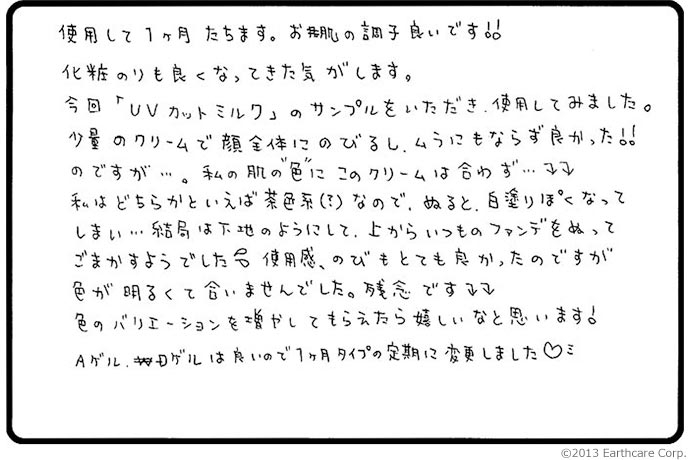 使用して1ヶ月たちます。お肌の調子良いです!!
化粧のりも良くなってきた気がします。
今回「UVカットミルク」のサンプルをいただき、使用してみました。
少量のクリームで顔全体にのびるし、ムラにもならず良かった!!
のですが…。私の肌の"色"にこのクリームは合わず…↓↓
私はどちらかといえば茶色系(?)なので、ぬると、白塗りぽくなって
しまい…結局は下地のようにして、上からいつものファンデをぬって
ごまかすようでした 使用感、のびもとても良かったのですが
色が明るくて合いませんでした。残念です↓↓
色のバリエーションを増やしてもらえたら嬉しいなと思います!
Aゲル、Dゲルは良いので1ヶ月タイプの定期に変更しました♡
©2013 Earthcare Corp.